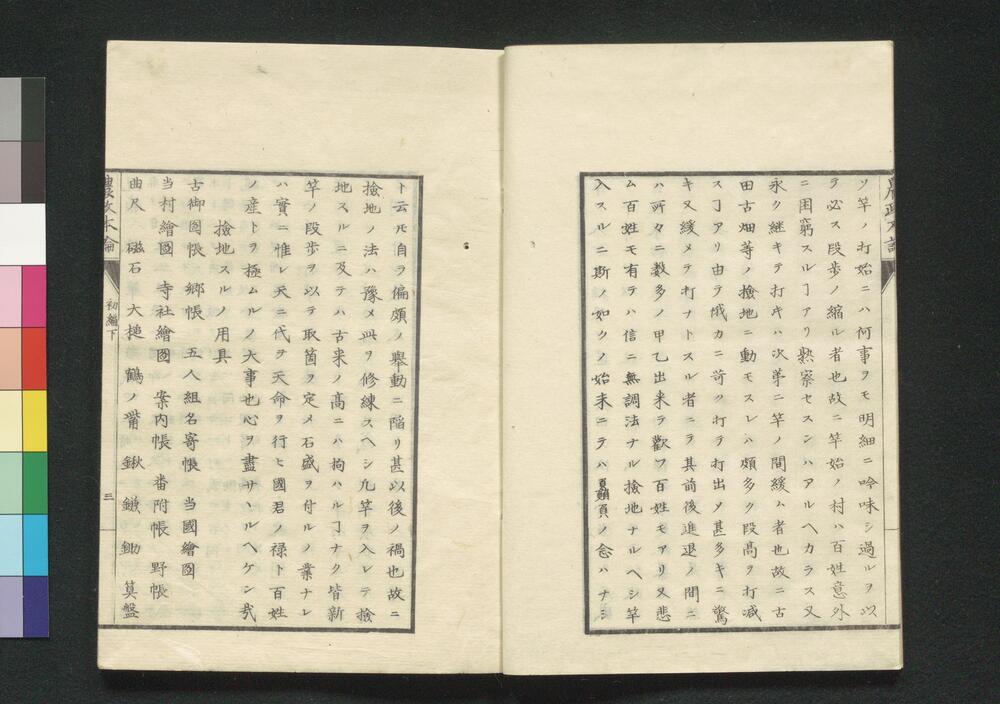 ソ竿ノ打始ニハ何事ヲモ明細ニ吟味シ過ルヲ以
テ必ス段歩ノ縮ル者也故ニ竿始ノ村ハ百姓意外
ニ困窮スルヿアリ熟察セスンハアルヘカラス又
永ク継キテ打キハ次第ニ竿ノ間緩ム者也故ニ古
田古畑等ノ撿地ニ動モスレハ頗多ク段高ヲ打減
スヿアリ由ラ俄カニ苛ク打テ打出ノ甚多キニ驚
キ又緩メテ打ナトスル者ニテ其前後進退ノ間ニ
ハ所々ニ数多ノ甲乙出来テ歡フ百姓モアリ又悲
ム百姓モ有テハ信ニ無調法ナル撿地ナルヘシ竿
入スルニ斯ノ如クノ始末ニテハ ノ念ハナシ
ト云氏自ラ偏頗ノ擧動ニ陥リ甚以後ノ禍也故ニ
撿地ノ法ハ豫メ此ヲ修練スヘシ九竿ヲ入レテ撿
地スルニ及テハ古来ノ髙ニハ拘ハルヿナク皆新
竿ノ段歩ヲ以テ取箇ヲ定メ石盛ヲ付ルノ業ナレ
ハ實ニ惟レ天ニ代ヲ天命ヲ行ヒ國君ノ禄ト百姓
ノ産トヲ極ムルノ大事也心ヲ盡サヽルヘケン哉
撿地スルノ用具
古御圖帳 郷帳 五人組名寄帳 当國繪圖
当村繪圖 寺社繪圖 案内帳 番附帳 野帳
曲尺 磁石 大槌 鶴ノ觜 鍬 鎌 鋤 算盤
農政本論 初編下 三